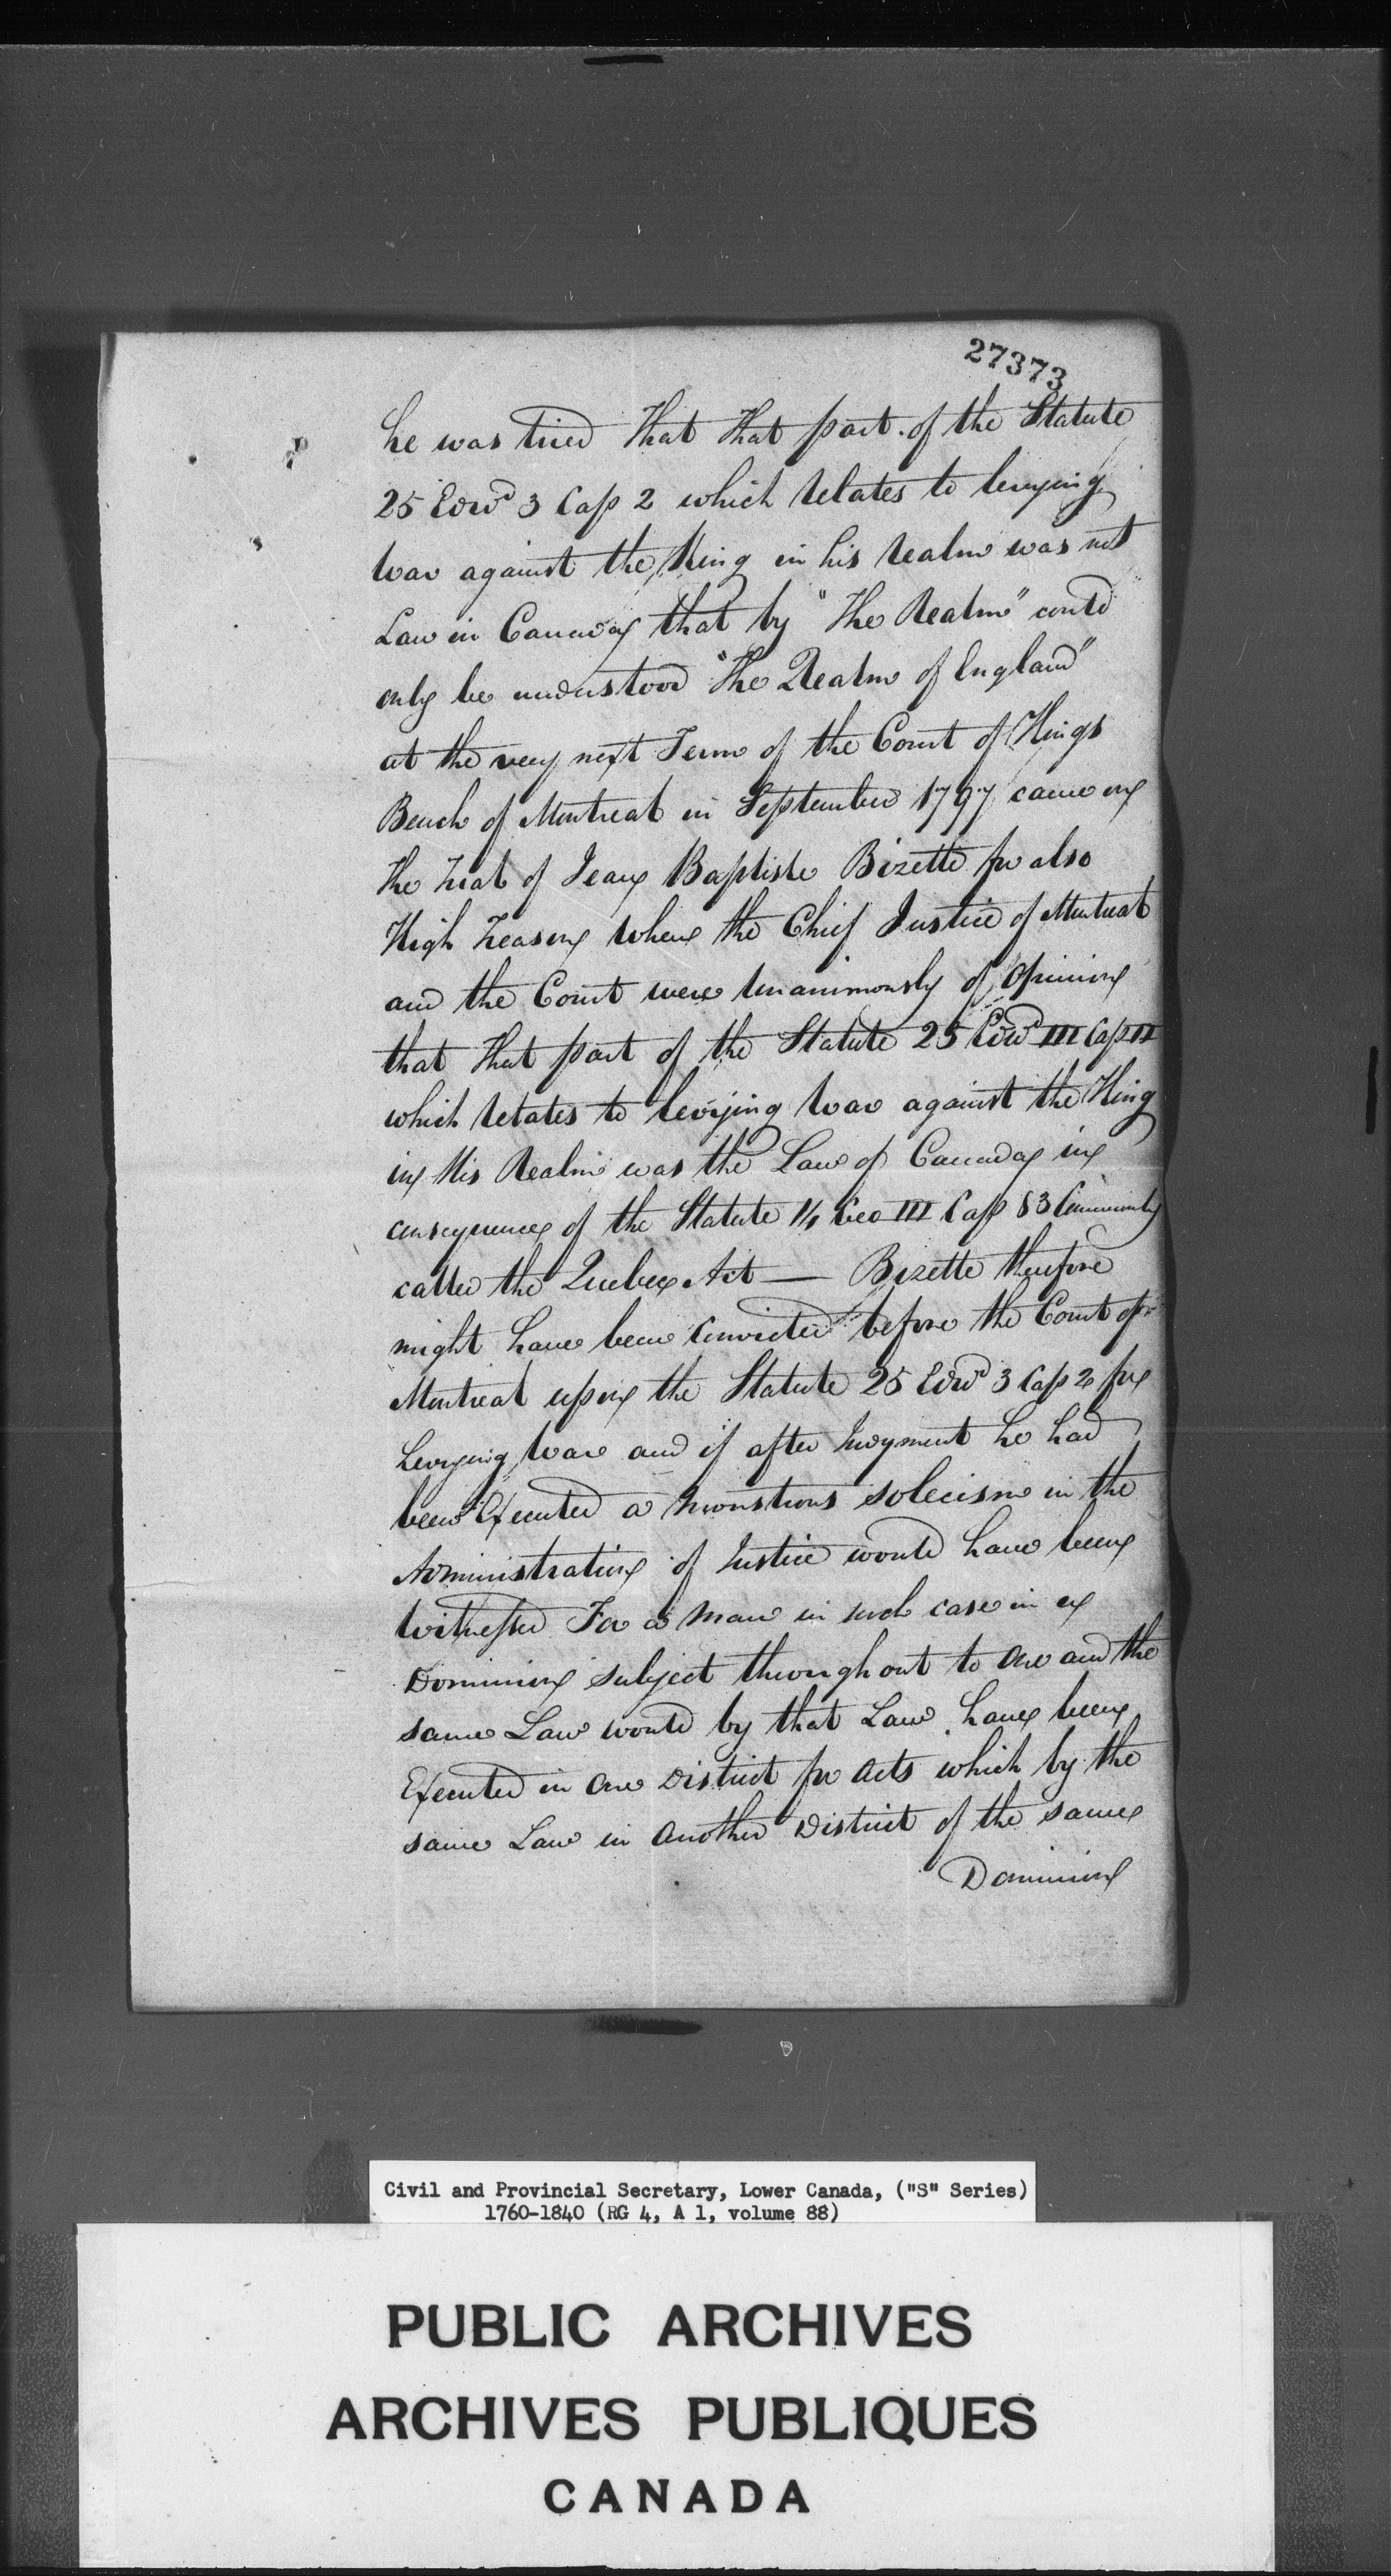 27373
he was tried that that part of the Statute
25 Edwd 3 Cap 2 which relates to levying
War against the King in his Realm was not
Law in Canada that by "The Realm" could
only be understood "The Realm of England"
at the very next Term of the Court of Kings
Bench of Montreal in September 1797 came on
the trial of Jean Baptiste Bizette for also
High Treason where the Chief Justice of Montreal
and the Court were Unanimously of Opinion
that that part of the Statute 25 Edwd III Cap II
which relates to levying War against the King
in His Realm was the Law of Canada in
consequence of the Statute 14 Geo III Cap 83 Commonly
called the Quebec Act — Bizette therefore
might have been Convicted before the Court of
Montreal upon the Statute 25 Edwd 3 Cap 2 for
Levying War and if after Judgment he had
been Executed a Monstrous solecism in the
Administration of Justice would have been
Witnessed For a Man in such case in a
Dominion subject throughout to One and the
same Law would by that Law have been
Executed in One District for Acts which by the
same Law in Another District of the same
Dominion
Civil and Provincial Secretary, Lower Canada, ("S" Series)
1760-1840 (RG 4, A 1, volume 88)
PUBLIC ARCHIVES
ARCHIVES PUBLIQUES
CANADA